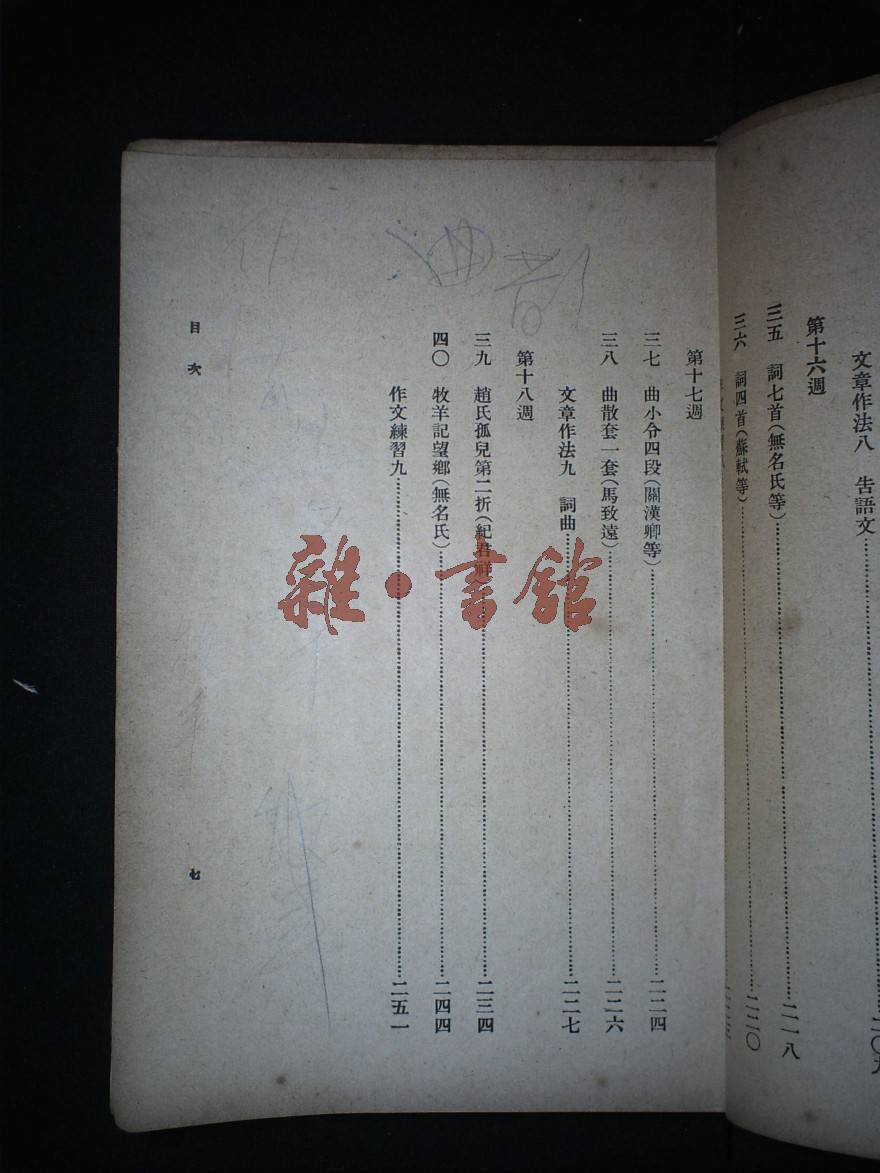 文章作法八　告語文……二〇九
第十六週
三五　詞七首(無名氏等)……二一八
三六　詞四首(蘇軾等)……二二〇
第十七週
三七　曲小令四段(關漢卿等)……二二四
三八　曲散套一套(馬致遠)……二二六
文章作法九　詞曲……二二七
第十八週
三九　趙氏孤兒第二折(紀君祥)……二三四
四〇　牧羊記望鄉(無名氏)……二四四
作文練習九……二五一
目次
七
雜·書館